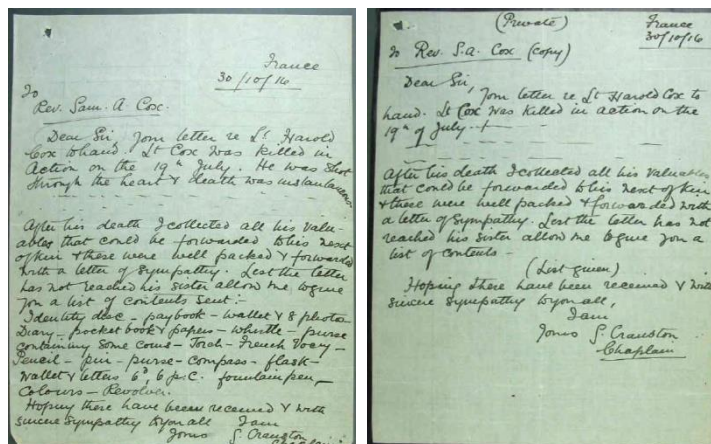 France
30/10/16
To
Rev. Sam. A. Cox.
Dear Sir, Your letter re Lt. Harold
Cox to hand. Lt Cox was killed in
Action on the 19th July. He was shot
through the heart & death was instantaneous.
After his death I collected all his valu-
ables that could be forwarded to his next
of kin & these were well packed & forwarded
with a letter of Sympathy. Lest the letter
has not reached his sister allow me to give
you a list of contents sent:-
Identity disc - paybook - wallet & 8 photos
Diary - pocket book & papers - whistle - purse
containing some coins - Torch - French Vocy -
Pencil - pin - purse - compass - flask -
Wallet & letters 6d, 6 p.c. fountain pen,
Colours - Revolver.
Hoping these have been received & with
sincere sympathy to you all I am
Yours G. Cranston
Chaplain
(Private)
France
30/10/16
To Rev. S.A. Cox (copy)
Dear Sir,
Your letter re Lt Harold Cox to
hand. Lt Cox was killed in action on the
19th of July.
After his death I collected all his valuables
that could be forwarded to his next of kin
& these were well packed & forwarded with
a letter of Sympathy. Lest the letter has not
reached his sister allow me to give you a
list of contents -
(List given)
Hoping these have been received & with
sincere sympathy to you all,
I am
Yours G. Cranston
Chaplain